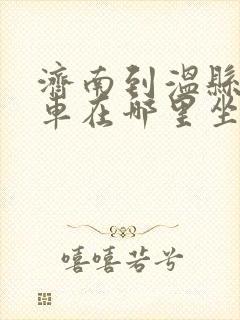 濟南到溫縣
車在哪里坐
嘻嘻若兮